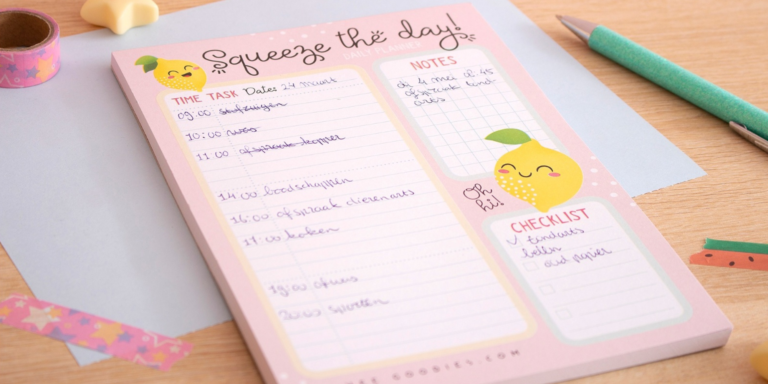 Squeeze the day!
DAILY PLANNER
TIME TASK Date: 24 maart
09:00 stofzuigen
10:00 was
11:00 afspraak kapper
14:00 boodschappen
16:00 afspraak dierenarts
17:00 koken
19:00
20:00 sporten
NOTES
afspraak tand-
arts
Oh
hi!
CHECKLIST
tandarts
bellen
oud papier
GOODIES.COM